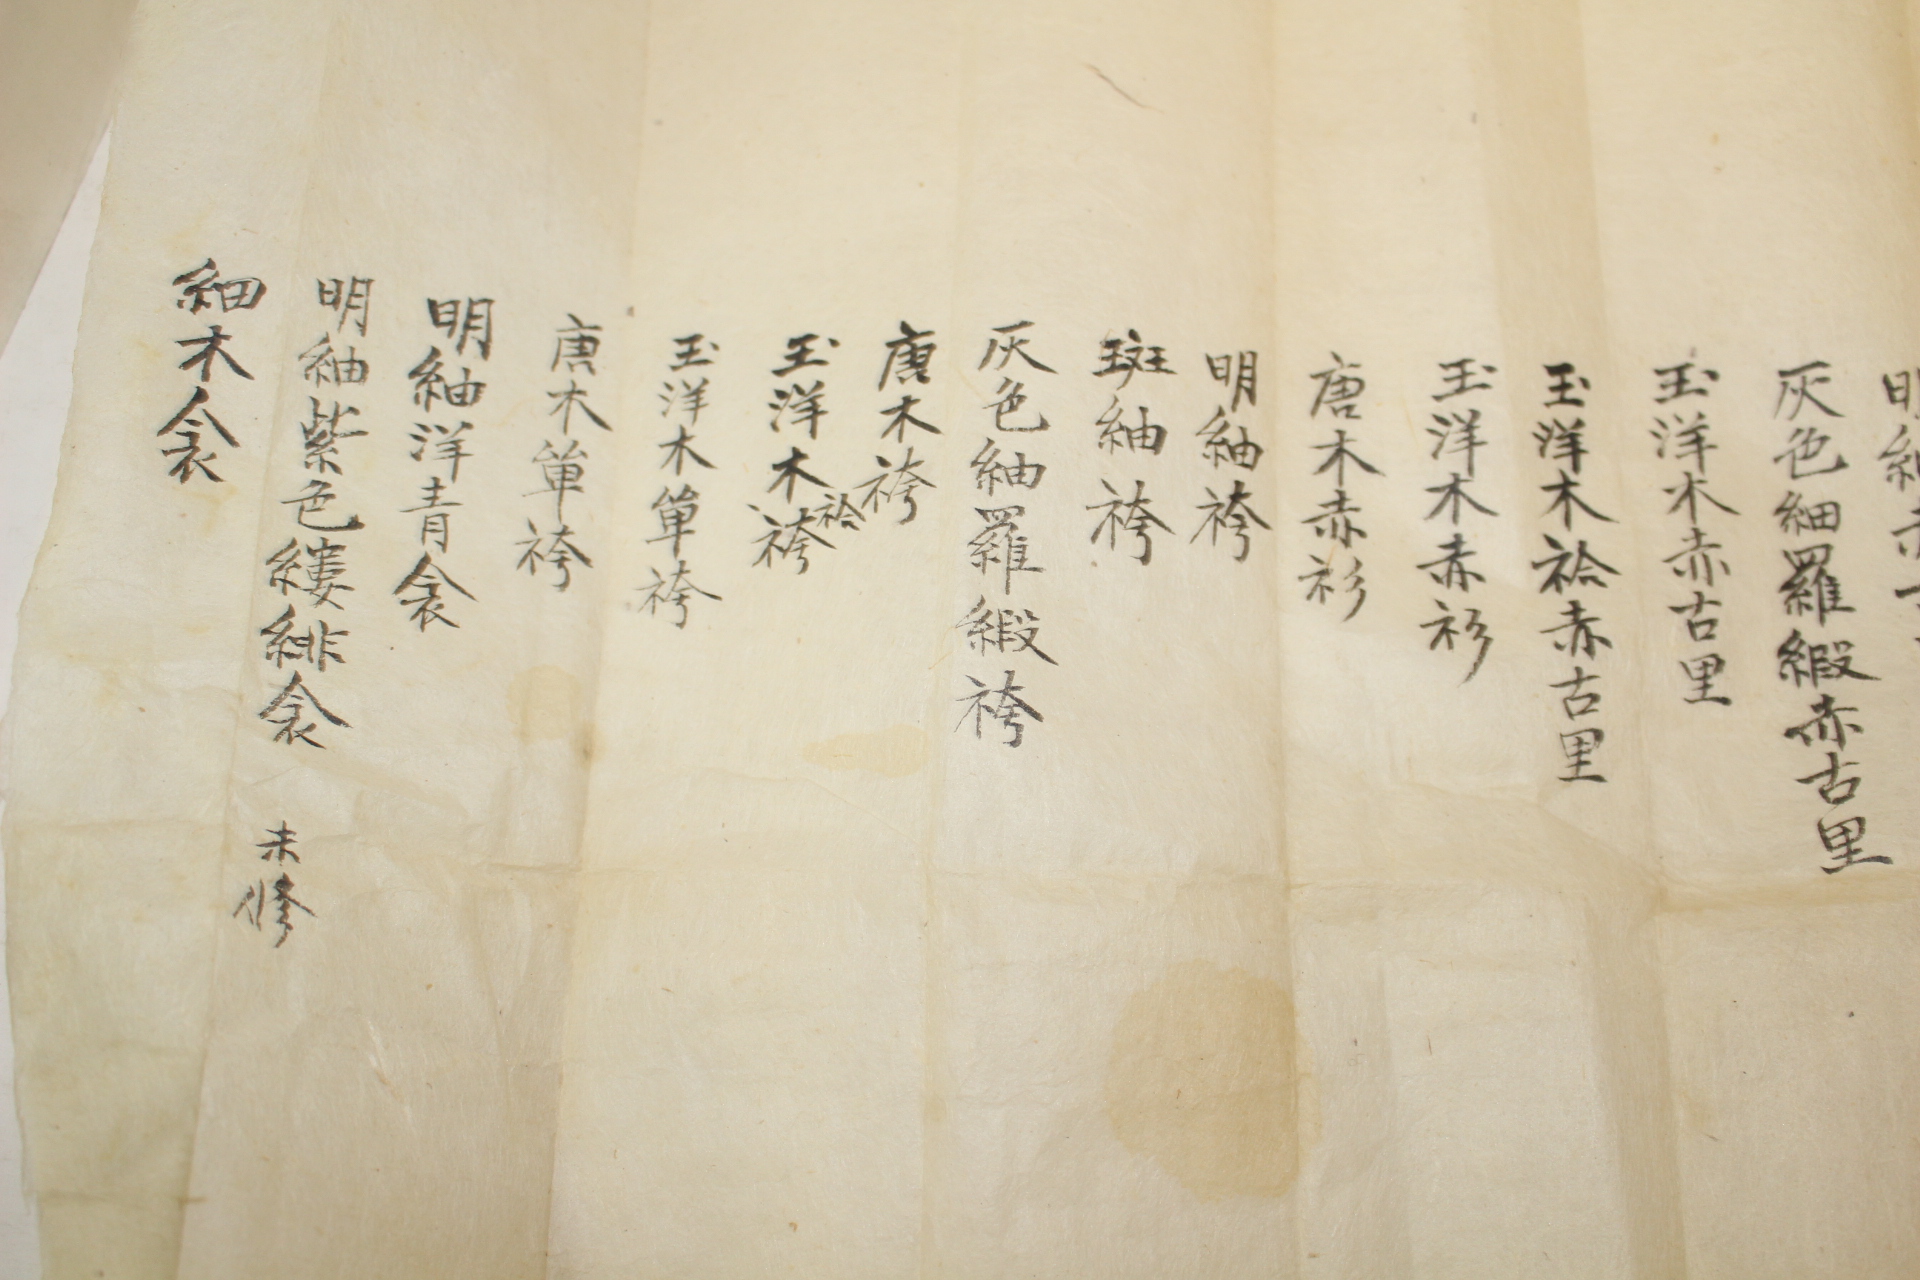 明紬赤
灰色細羅緞赤古里
玉洋木赤古里
玉洋木袷赤古里
玉洋木赤衫
唐木赤衫
明紬袴
斑紬袴
灰色紬羅緞袴
唐木袴
玉洋木袷袴
玉洋木單袴
唐木單袴
明紬洋青衾
明紬紫色縷緋衾 未修
細木衾